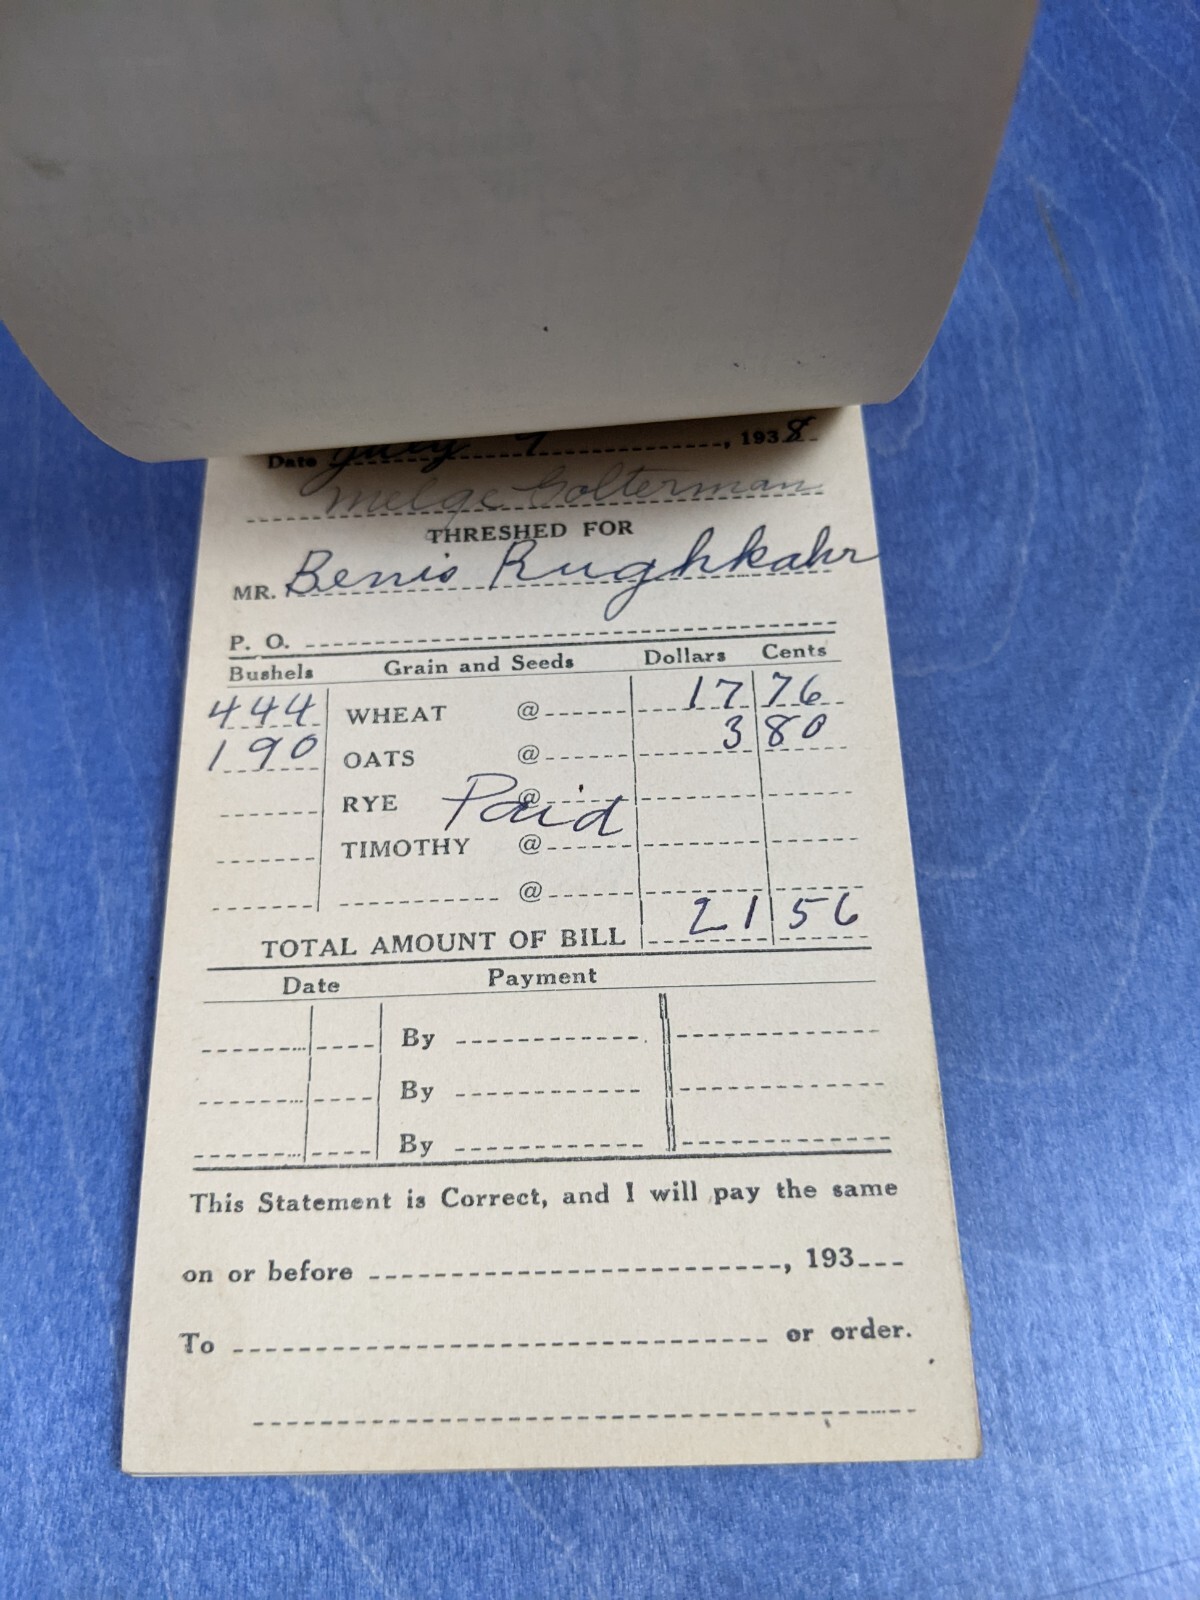 Date July 9, 1938
Melge Golterman
THRESHED FOR
MR. Benis Rughkahr
P. O.
Bushels Grain and Seeds Dollars Cents
444 WHEAT @ 17 76
190 OATS @ 3 80
RYE @
Paid
TIMOTHY @
@
TOTAL AMOUNT OF BILL 21 56
Date Payment
By
By
By
This Statement is Correct, and I will pay the same
on or before , 193
To or order.